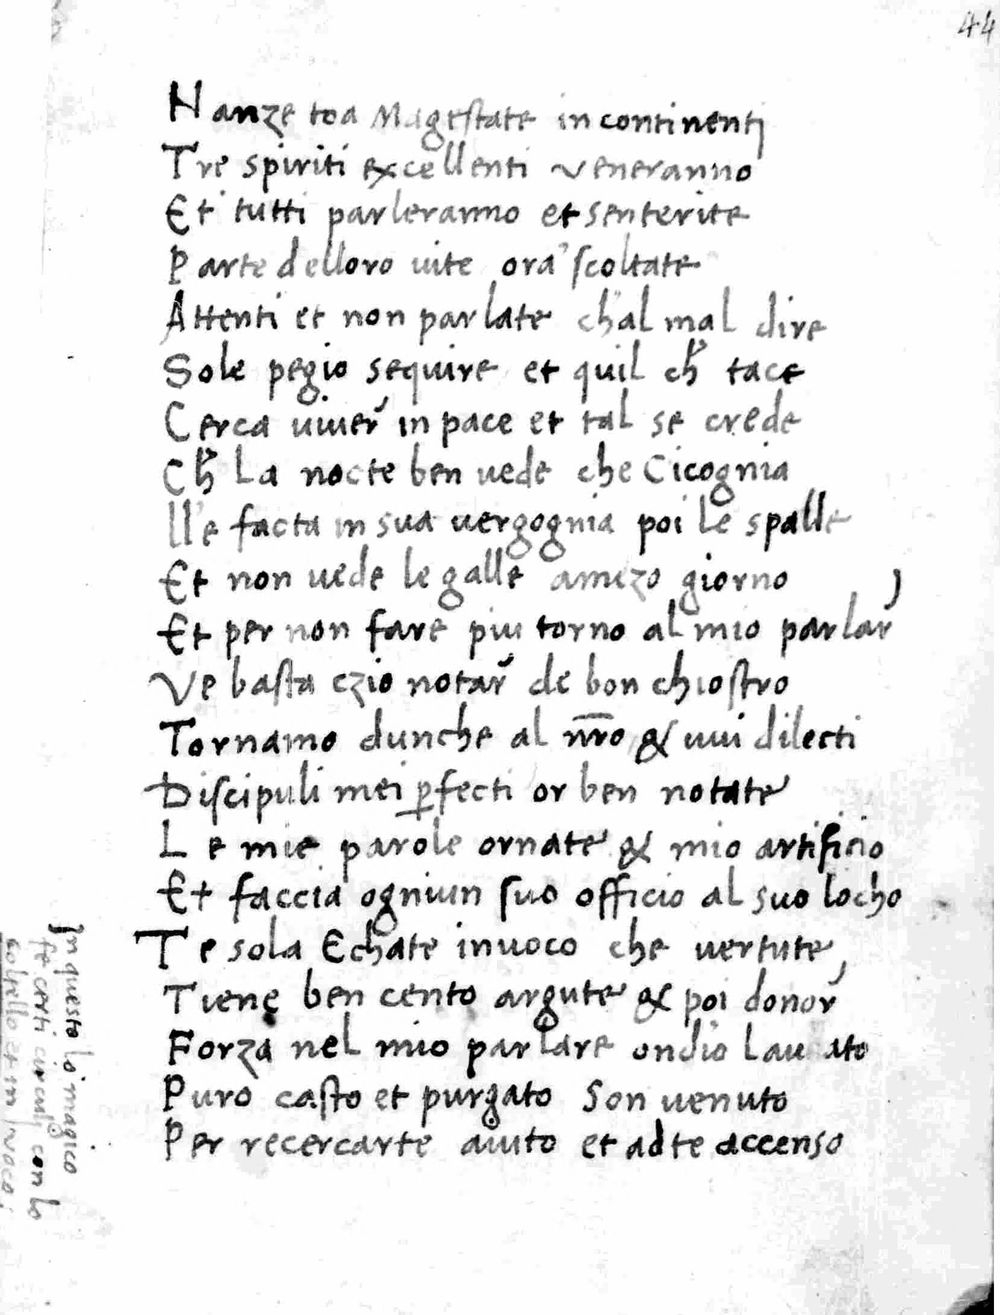 44
Nanze toa Magestate in continenti
Tre spiriti excellenti veneranno
Et tutti parleranno et senterite
Parte delloro uite ora scoltate
Attenti et non parlate ch'al mal dire
Sole pegio sequire et quil ch̓ tace
Cerca uiuer̓ in pace et tal se crede
Ch̓ La nocte ben uede che Cicognia
ll'e facta in sua uergognia poi le spalle
Et non uede le galle amezo giorno
Et per non fare piu torno al mio parlar̓
Ve basta czio notar̓ de bon chiostro
Tornamo dunche al nr̅o & uui dilecti
Discipuli mei ꝑfecti or ben notate
Le mie parole ornate & mio artificio
Et faccia ogniun suo officio al suo locho
Te sola Echate inuoco che uertute
Tiene ben cento argute & poi donor̓
Forza nel mio parlare ondio lauato
Puro casto et purgato Son uenuto
Per recercarte aiuto et ad te accenso
In questo lo magico
fe certi circuli con lo
coltello et in Inuoca